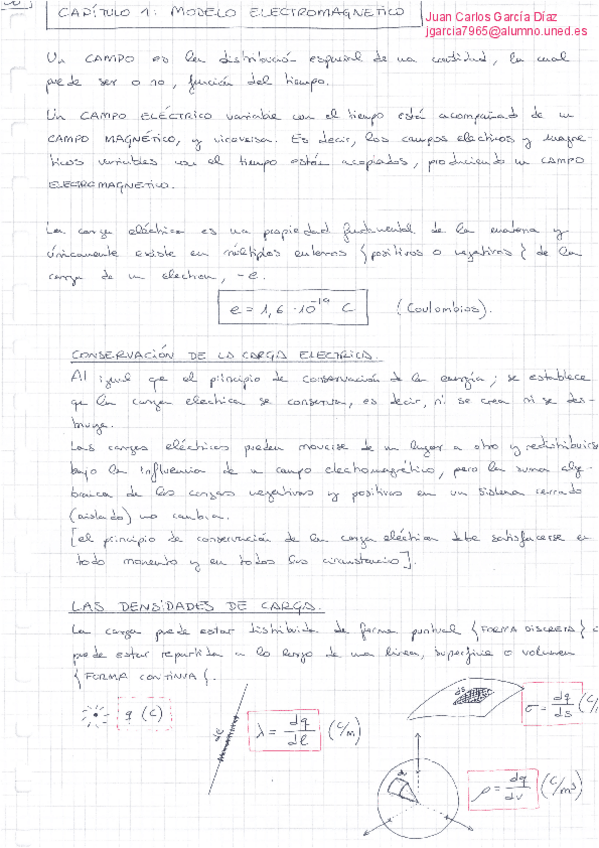 CAPÍTULO 1: MODELO ELECTROMAGNETICO
Juan Carlos García Díaz
jgarcia7965@alumno.uned.es
Un CAMPO es la distribución espacial de una cantidad, la cual
puede ser o no, función del tiempo.
Un CAMPO ELÉCTRICO variable con el tiempo está acompañado de un
CAMPO MAGNÉTICO, y viceversa. Es decir, los campos eléctricos y magné-
ticos variables con el tiempo están acoplados, produciendo un CAMPO
ELECTROMAGNETICO.
La carga eléctrica es una propiedad fundamental de la materia y
únicamente existe en múltiplos enteros {positivos o negativos} de la
carga de un electron, -e.
e = 1,6 · 10⁻¹⁹ C (Coulombios).
CONSERVACIÓN DE LA CARGA ELECTRICA.
Al igual que el principio de conservación de la energía; se establece
que la carga electrica se conserva, es decir, ni se crea ni se des-
truye.
Las cargas eléctricas pueden moverse de un lugar a otro y redistribuirse
bajo la influencia de un campo electromagnético, pero la suma alge-
braica de las cargas negativas y positivas en un sistema cerrado
(aislado) no cambia.
[el principio de conservación de la carga eléctrica debe satisfacerse en
todo momento y en todas las circunstancias].
LAS DENSIDADES DE CARGA.
La carga puede estar distribuida de forma puntual {FORMA DISCRETA} o
puede estar repartida a lo largo de una linea, superficie o volumen
{FORMA CONTINUA}.
q (C)
dl
λ = dq/dl (C/m)
ds
σ = dq/ds (C/
dv
ρ = dq/dv (C/m³)